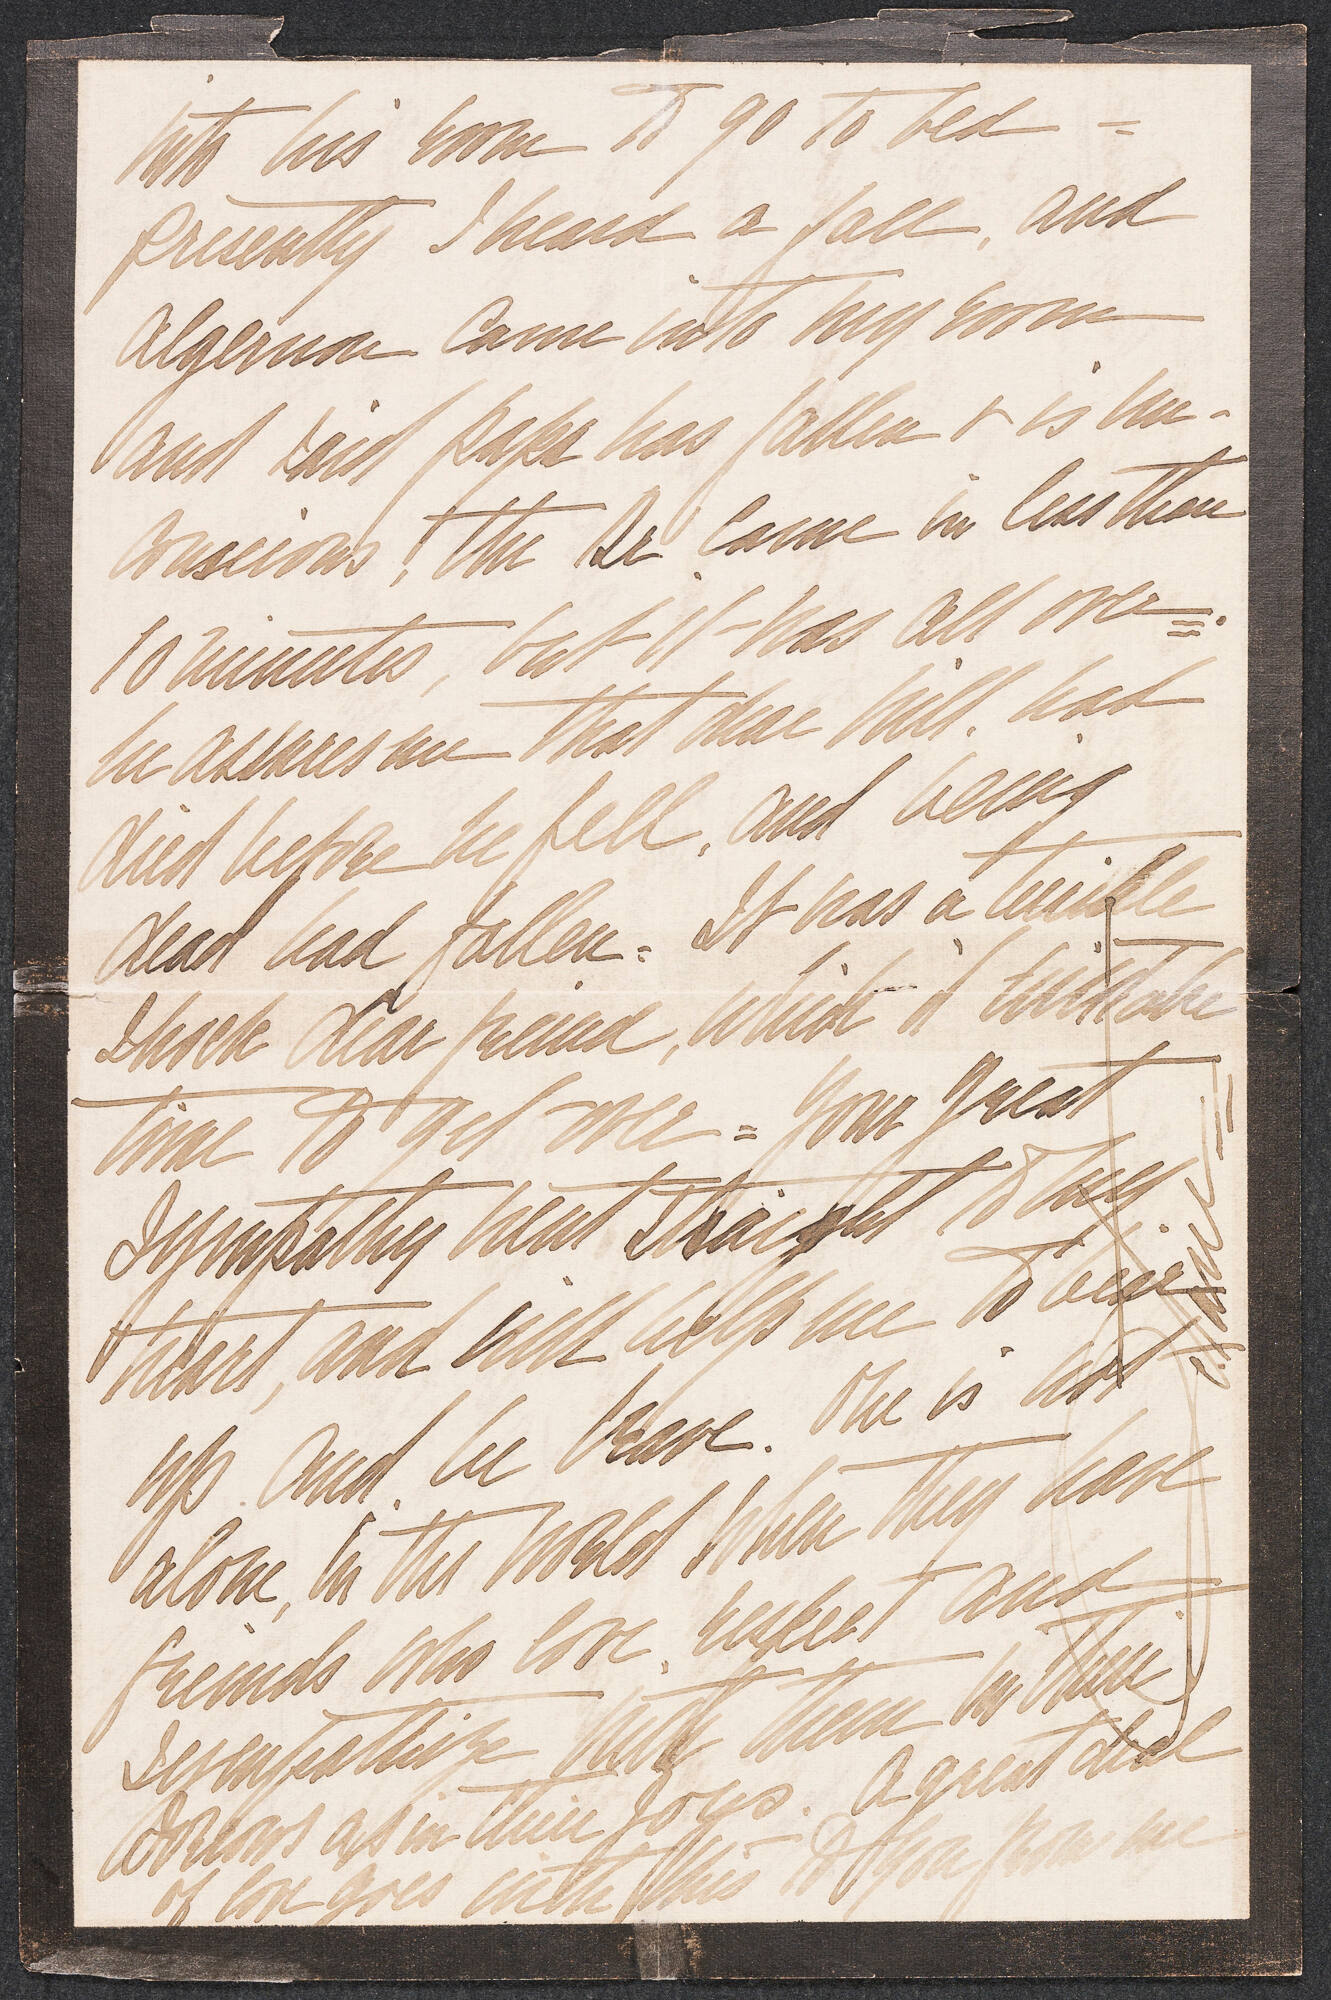 into his room to go to bed =
presently I heard a fall, and
Algernon came into my room
and said papa has fallen & is un-
conscious! the Dr came in less than
10 minutes, but it was all over =.
he assures me that dear Will. had
died before he fell, and being
dead had fallen = It was a terrible
shock dear friend, which it will take
time to get over = your great
sympathy went straight to my
heart, and will help me to bear
up. and. be brave. One is not
alone, in the world when they have
friends who love, respect and
sympathize with them in their
sorrows as in their joys. A great deal
of love goes with this to you from me